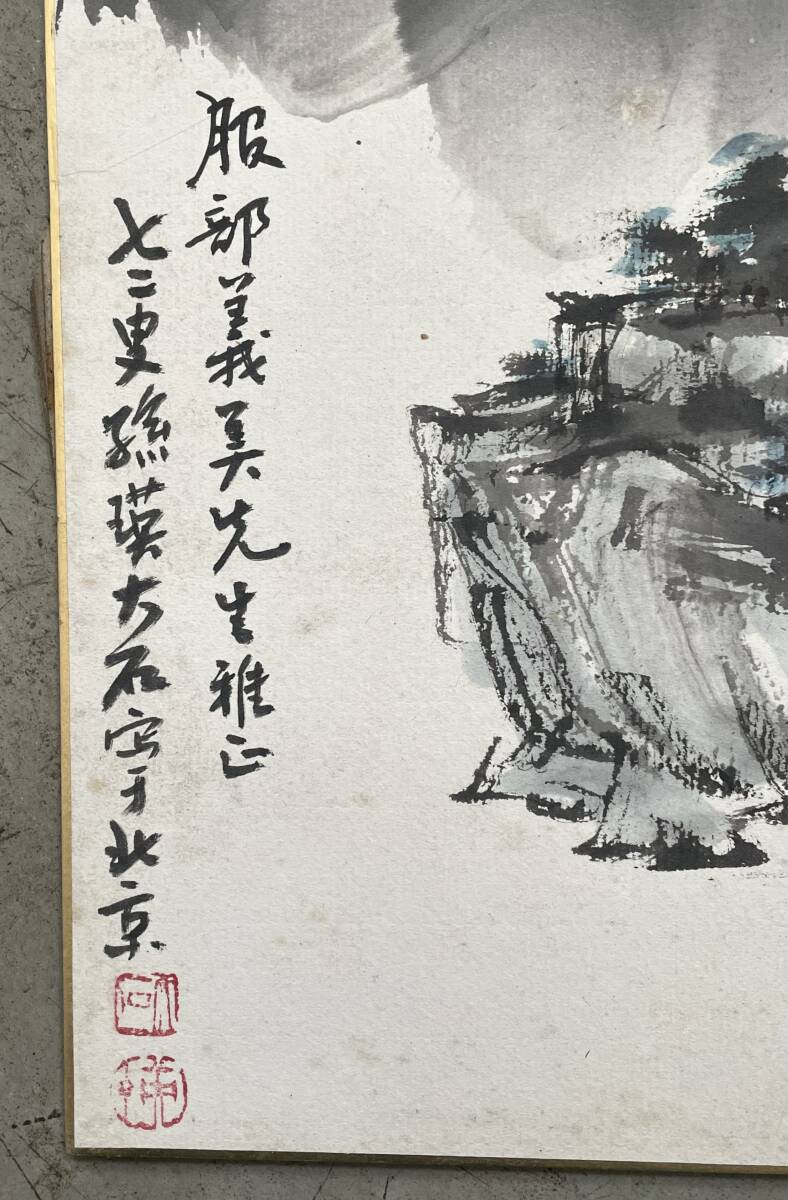 服部義美先生雅正
七二叟孫瑛大石写于北京
大石